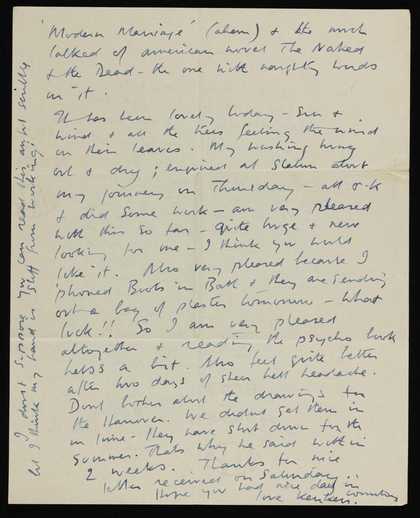 'Modern Marriage' (ahem) & the much
talked of american novel The Naked
& the Dead - the one with naughty words
in it.
It has been lovely today - Sun &
wind & all the trees feeling the wind
in their leaves. My washing hung
out & dry; enquired at Station about
my journey on Thursday - all o.k
& did some work - am very pleased
with this so far - quite huge & new
looking for one - I think you would
like it. Also very pleased because I
'phoned Boots in Bath & they are sending
out a bag of plaster tomorrow - what
luck!! So I am very pleased
altogether & reading the psycho book
helps a bit. Also feel quite better
after two days of sheer hell headache.
Dont bother about the drawings for
the Hanover. We didnt get them in
in time - they have shut down for the
summer. Thats why he said within
2 weeks. Thanks for nice
letter received on Saturday..
Hope you had nice day in country
love
I dont suppose you can read this awful scribble
but I think my hand is stiff from working!